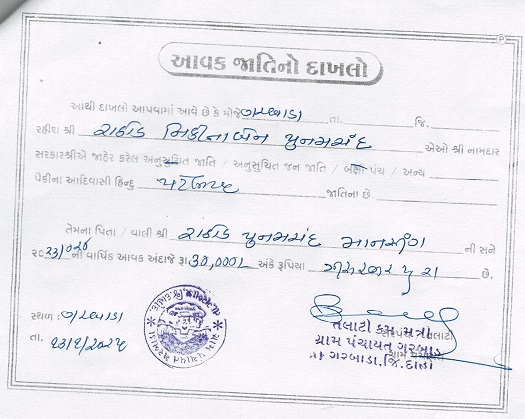 આવક જાતિનો દાખલો
આથી દાખલો આપવામાં આવે છે કે મોજે ગરબાડા તા. જિ.
રહીશ શ્રી રાઠોડ પુનમચંદ એઓ શ્રી નામદાર
સરકારશ્રીએ જાહેર કરેલ અનુસુચિત જાતિ / અનુસુચિત જન જાતિ / બક્ષી પંચ / અન્ય
પૈકીના આદિવાસી હિન્દુ જાતિના છે
તેમના પિતા / વાલી શ્રી રાઠોડ પુનમચંદ ની સને
ની વાર્ષિક આવક અંદાજે રૂા 30,000/- અંકે રૂપિયા ત્રીસ હજાર પુરા છે.
સ્થળ : ગરબાડા
તા.
તલાટી કમ મંત્રી
ગ્રામ પંચાયત ગરબાડા
તા. ગરબાડા. જિ. દાહોદ